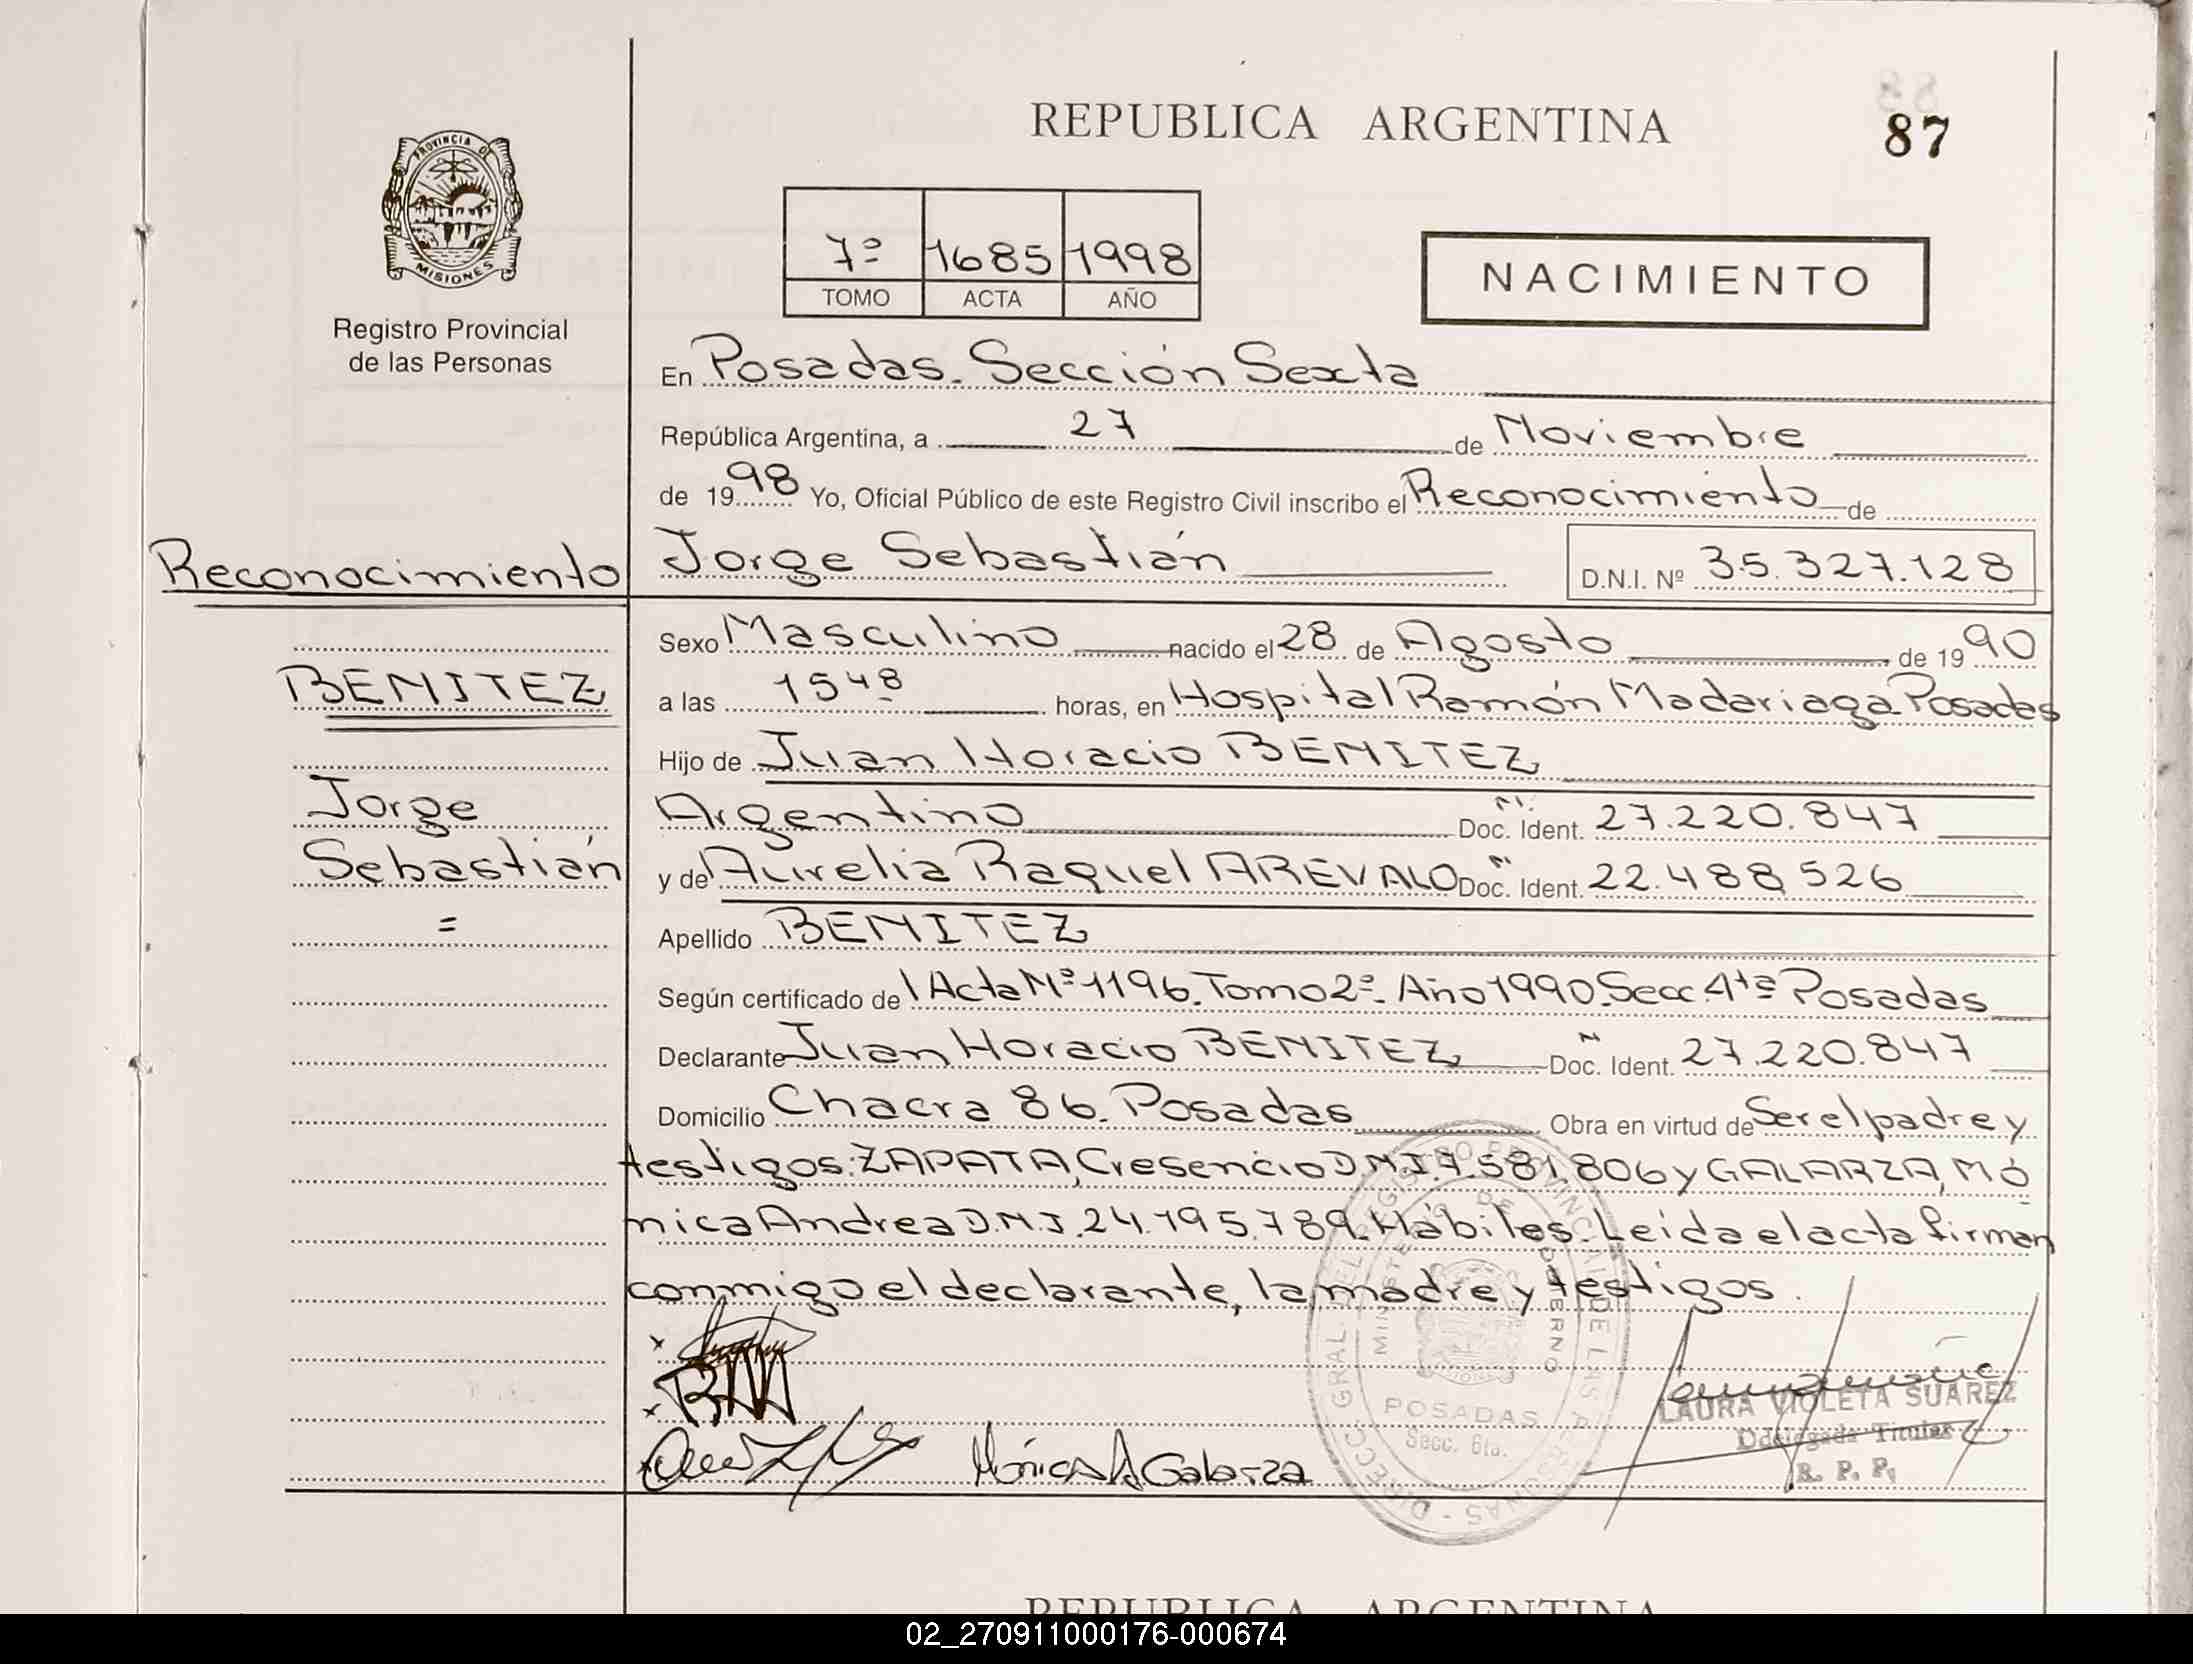 REPUBLICA ARGENTINA
87
PROVINCIA DE
MISIONES
Registro Provincial
de las Personas
7º 1685 1998
TOMO ACTA AÑO
NACIMIENTO
En Posadas. Sección Sexta
República Argentina, a 27 de Noviembre
de 1998 Yo, Oficial Público de este Registro Civil inscribo el Reconocimiento de
Reconocimiento
Jorge Sebastián D.N.I. Nº 35.327.128
Sexo Masculino nacido el 28 de Agosto de 1990
BENITEZ
a las 15 48 horas, en Hospital Ramón Madariaga Posadas
Hijo de Juan Horacio BENITEZ
Jorge
Argentino Doc. Ident. 27.220.847
Sebastián
y de Aurelia Raquel AREVALO Doc. Ident. 22.488.526
=
Apellido BENITEZ
Según certificado de Acta Nº 1196. Tomo 2º. Año 1990. Secc. 4ta Posadas
Declarante Juan Horacio BENITEZ Doc. Ident. 27.220.847
Domicilio Chacra 86. Posadas Obra en virtud de Ser el padre y
testigos: ZAPATA, Cresencio D.N.I 7.581.806 y GALARZA, Mó
nica Andrea D.N.I. 24.195.789. Hábiles. Leida el acta firman
conmigo el declarante, la madre y testigos.
Mónica A Galarza
LAURA VIOLETA SUAREZ
Delegada Titular
R. P. P.
POSADAS
Secc. 6ta.
REPUBLICA ARGENTINA
02_270911000176-000674